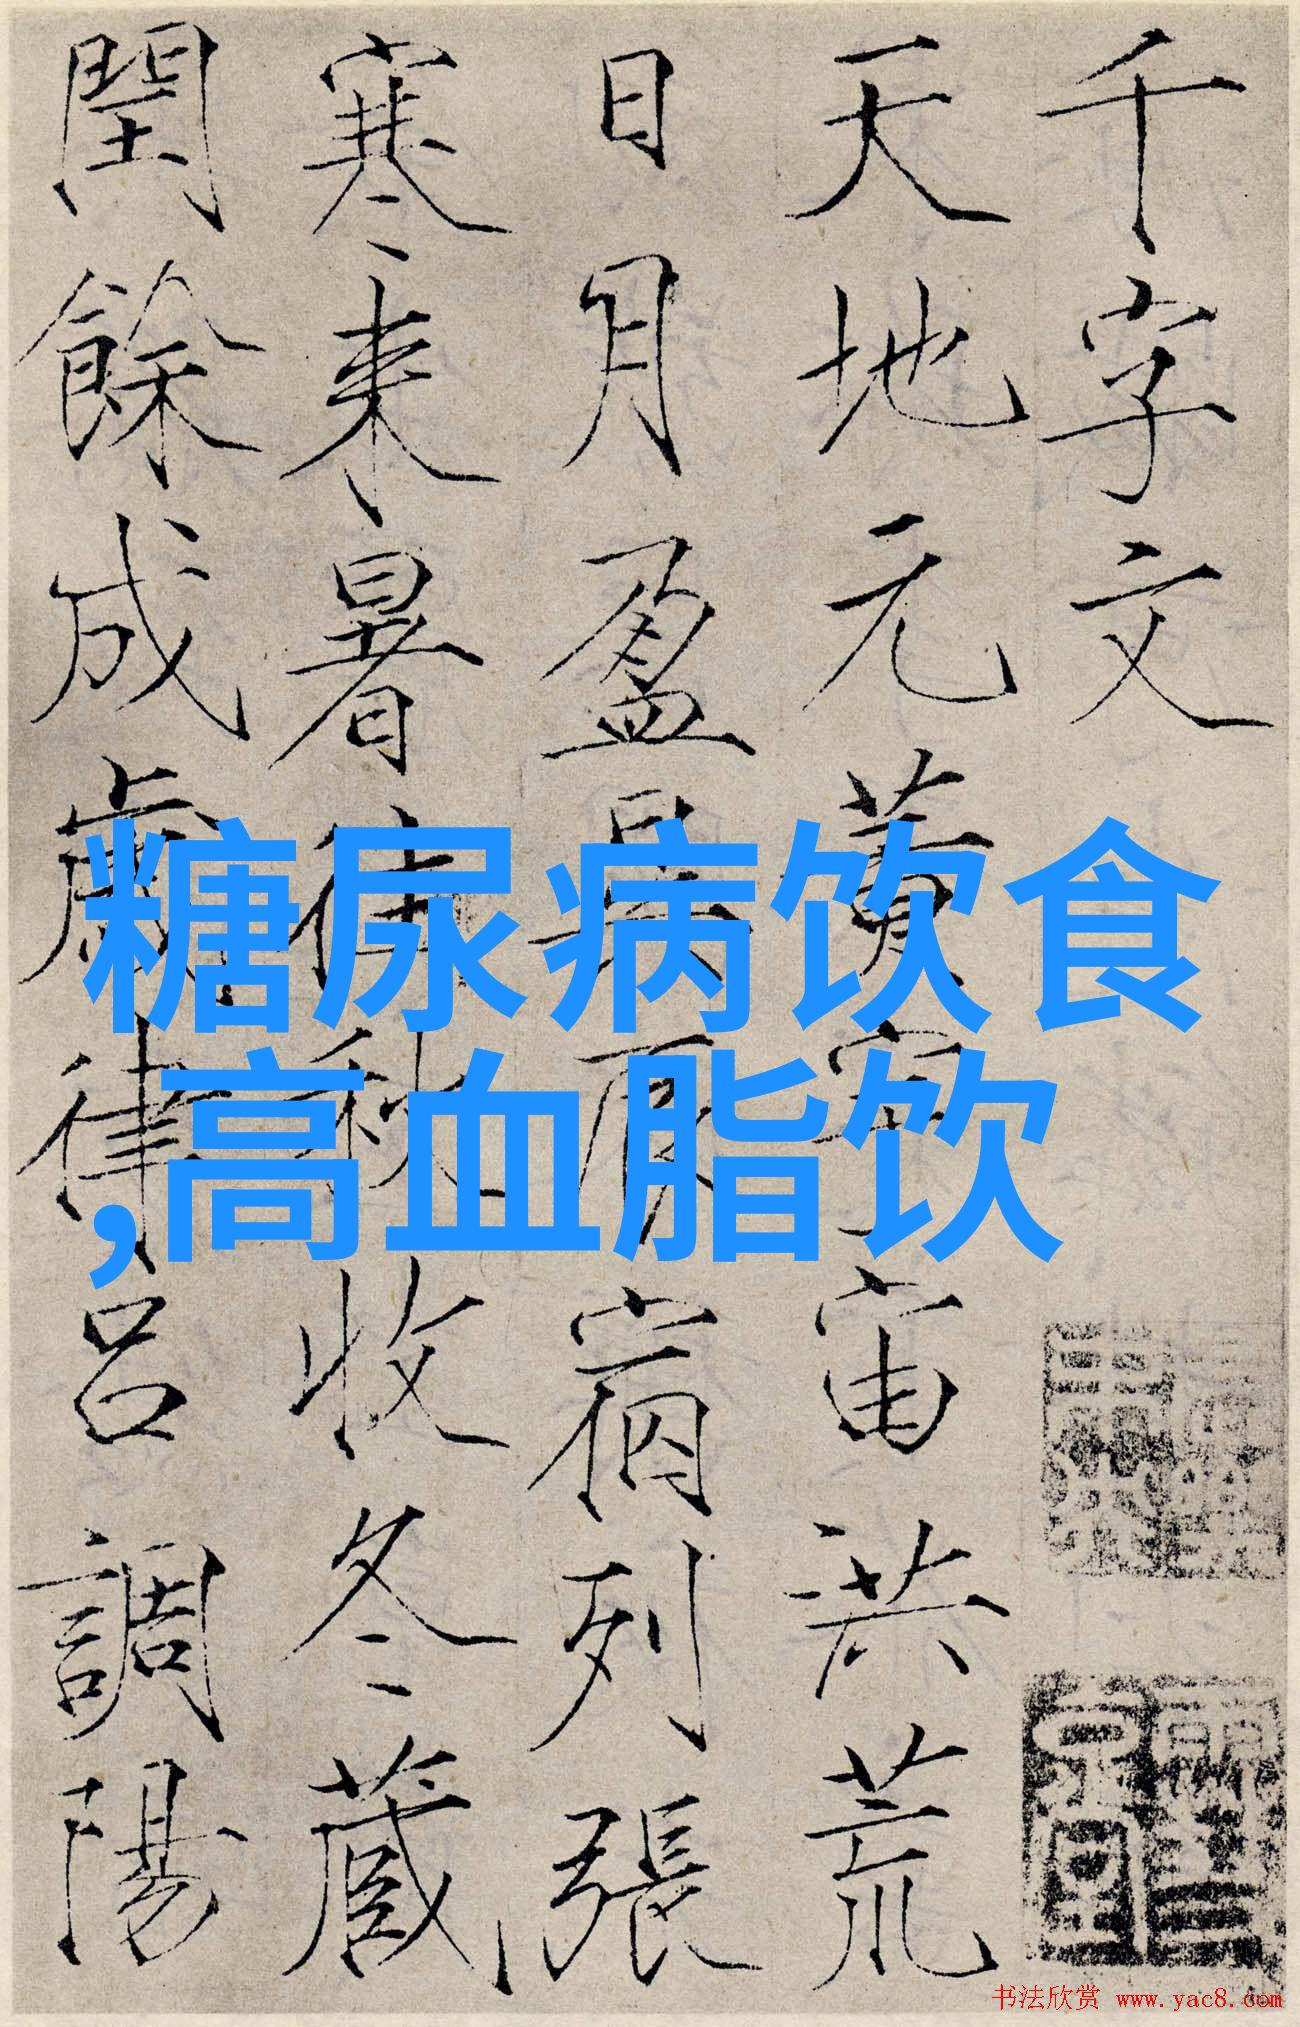 千字文
天地元黄宇宙洪荒
日月盈昃辰宿列張
寒来暑往秋收冬藏
閏餘成歲律呂調陽
糖尿病饮食
,高血脂饮
书法欣赏 www.yac8.com